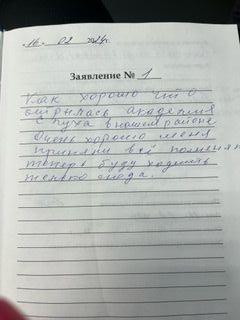 16. 02 2024г.
Заявление № 1
Как хорошо что
открылась академия
слуха в нашем районе
Очень хорошо меня
приняли всё
теперь буду ходить
только сюда.